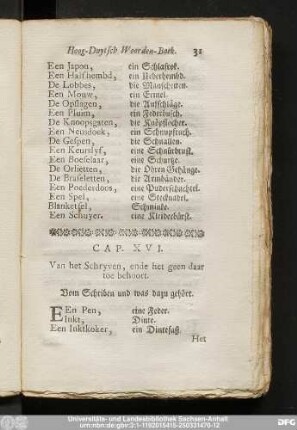 Hoog-Duytsch Woorden-Boek. 31
Een Japon, ein Schlafrok.
Een Halfhembd, ein Ueberhembd.
De Lobbes, die Manschetten.
Een Mouw, ein Ermel.
De Opslagen, die Aufschläge.
Een Pluim, ein Federbusch.
De Knoopsgaten, die Knöpflöcher.
Een Neusdoek, ein Schnupftuch.
De Gespen, die Schnallen.
Een Keurslyf, eine Schnürbrust.
Een Boeselaar, eine Schürtze.
De Orlietten, die Ohren Gehänge.
De Braseletten, die Armbänder.
Een Poederdoos, eine Puderschachtel.
Een Spel, eine Stecknadel.
Blanketsel, Schminke.
Een Schuyer. eine Kleiderbürst.
CAP. XVI.
Van het Schryven, ende het geen daar
toe behoort.
Vom Schreiben und was dazu gehört.
EEn Pen, eine Feder.
Inkt, Dinte.
Een Inktkoker, ein Dintefaß.
Het
Universitäts- und Landesbibliothek Sachsen-Anhalt
urn:nbn:de:gbv:3:1-1192015415-250331470-12